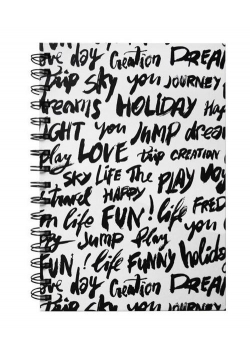 day Creation DREAM
trip SKY you JOURNEY
dreams HOLIDAY
you JUMP dream
play LOVE trip CREATION
SKY LIFE THE PLAY
travel HAPPY
life FUN! life
JUMP Play you
FUN! life FUNNY holiday
day Creation DREAM